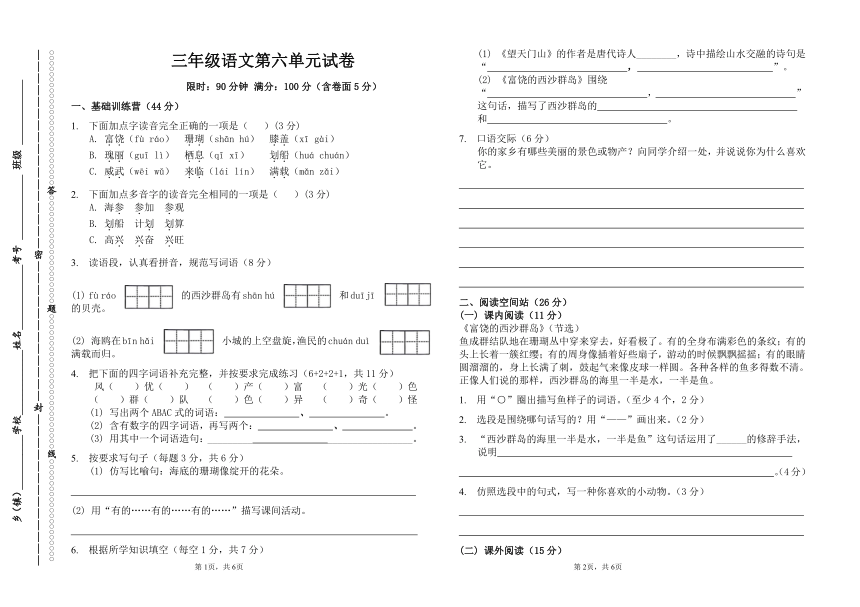 三年级语文第六单元试卷
限时：90 分钟 满分：100 分（含卷面 5 分）
一、基础训练营（44 分）
1. 下面加点字读音完全正确的一项是（ ）(3 分)
A. 富饶（fù ráo） 珊瑚（shān hú） 膝盖（xī gài）
B. 瑰丽（guī lì） 栖息（qī xī） 划船（huá chuán）
C. 威武（wēi wǔ） 来临（lái lín） 满载（mǎn zǎi）
2. 下面加点多音字的读音完全相同的一项是（ ）(3 分)
A. 海参 参加 参观
B. 划船 计划 划算
C. 高兴 兴奋 兴旺
3. 读语段，认真看拼音，规范写词语（8 分）
(1) fù ráo 的西沙群岛有 shān hú 和 duī jī
的贝壳。
(2) 海鸥在 bīn hǎi 小城的上空盘旋，渔民的 chuán duì
满载而归。
4. 把下面的四字词语补充完整，并按要求完成练习（6+2+2+1，共 11 分）
风（ ）优（ ） （ ）产（ ）富 （ ）光（ ）色
（ ）群（ ）队 （ ）色（ ）异 （ ）奇（ ）怪
(1) 写出两个 ABAC 式的词语：、。
(2) 含有数字的四字词语，再写两个：、。
(3) 用其中一个词语造句：。
5. 按要求写句子（每题 3 分，共 6 分）
(1) 仿写比喻句：海底的珊瑚像绽开的花朵。
(2) 用“有的……有的……有的……”描写课间活动。
6. 根据所学知识填空（每空 1 分，共 7 分）
第 1页，共 6页
(1) 《望天门山》的作者是唐代诗人________，诗中描绘山水交融的诗句是
“，”。
(2) 《富饶的西沙群岛》围绕
“，”
这句话，描写了西沙群岛的
和。
7. 口语交际（6 分）
你的家乡有哪些美丽的景色或物产？向同学介绍一处，并说说你为什么喜欢
它。
二、阅读空间站（26 分）
(一) 课内阅读（11 分）
《富饶的西沙群岛》（节选）
鱼成群结队地在珊瑚丛中穿来穿去，好看极了。有的全身布满彩色的条纹；有的
头上长着一簇红缨；有的周身像插着好些扇子，游动的时候飘飘摇摇；有的眼睛
圆溜溜的，身上长满了刺，鼓起气来像皮球一样圆。各种各样的鱼多得数不清。
正像人们说的那样，西沙群岛的海里一半是水，一半是鱼。
1. 用“○”圈出描写鱼样子的词语。（至少 4 个，2 分）
2. 选段是围绕哪句话写的？用“——”画出来。（2 分）
3. “西沙群岛的海里一半是水，一半是鱼”这句话运用了______的修辞手法，
说明
。（4 分）
4. 仿照选段中的句式，写一种你喜欢的小动物。（3 分）
(二) 课外阅读（15 分）
第 2页，共 6页
乡（镇） 学校 姓名 考号 班级
线 封 题 密 答